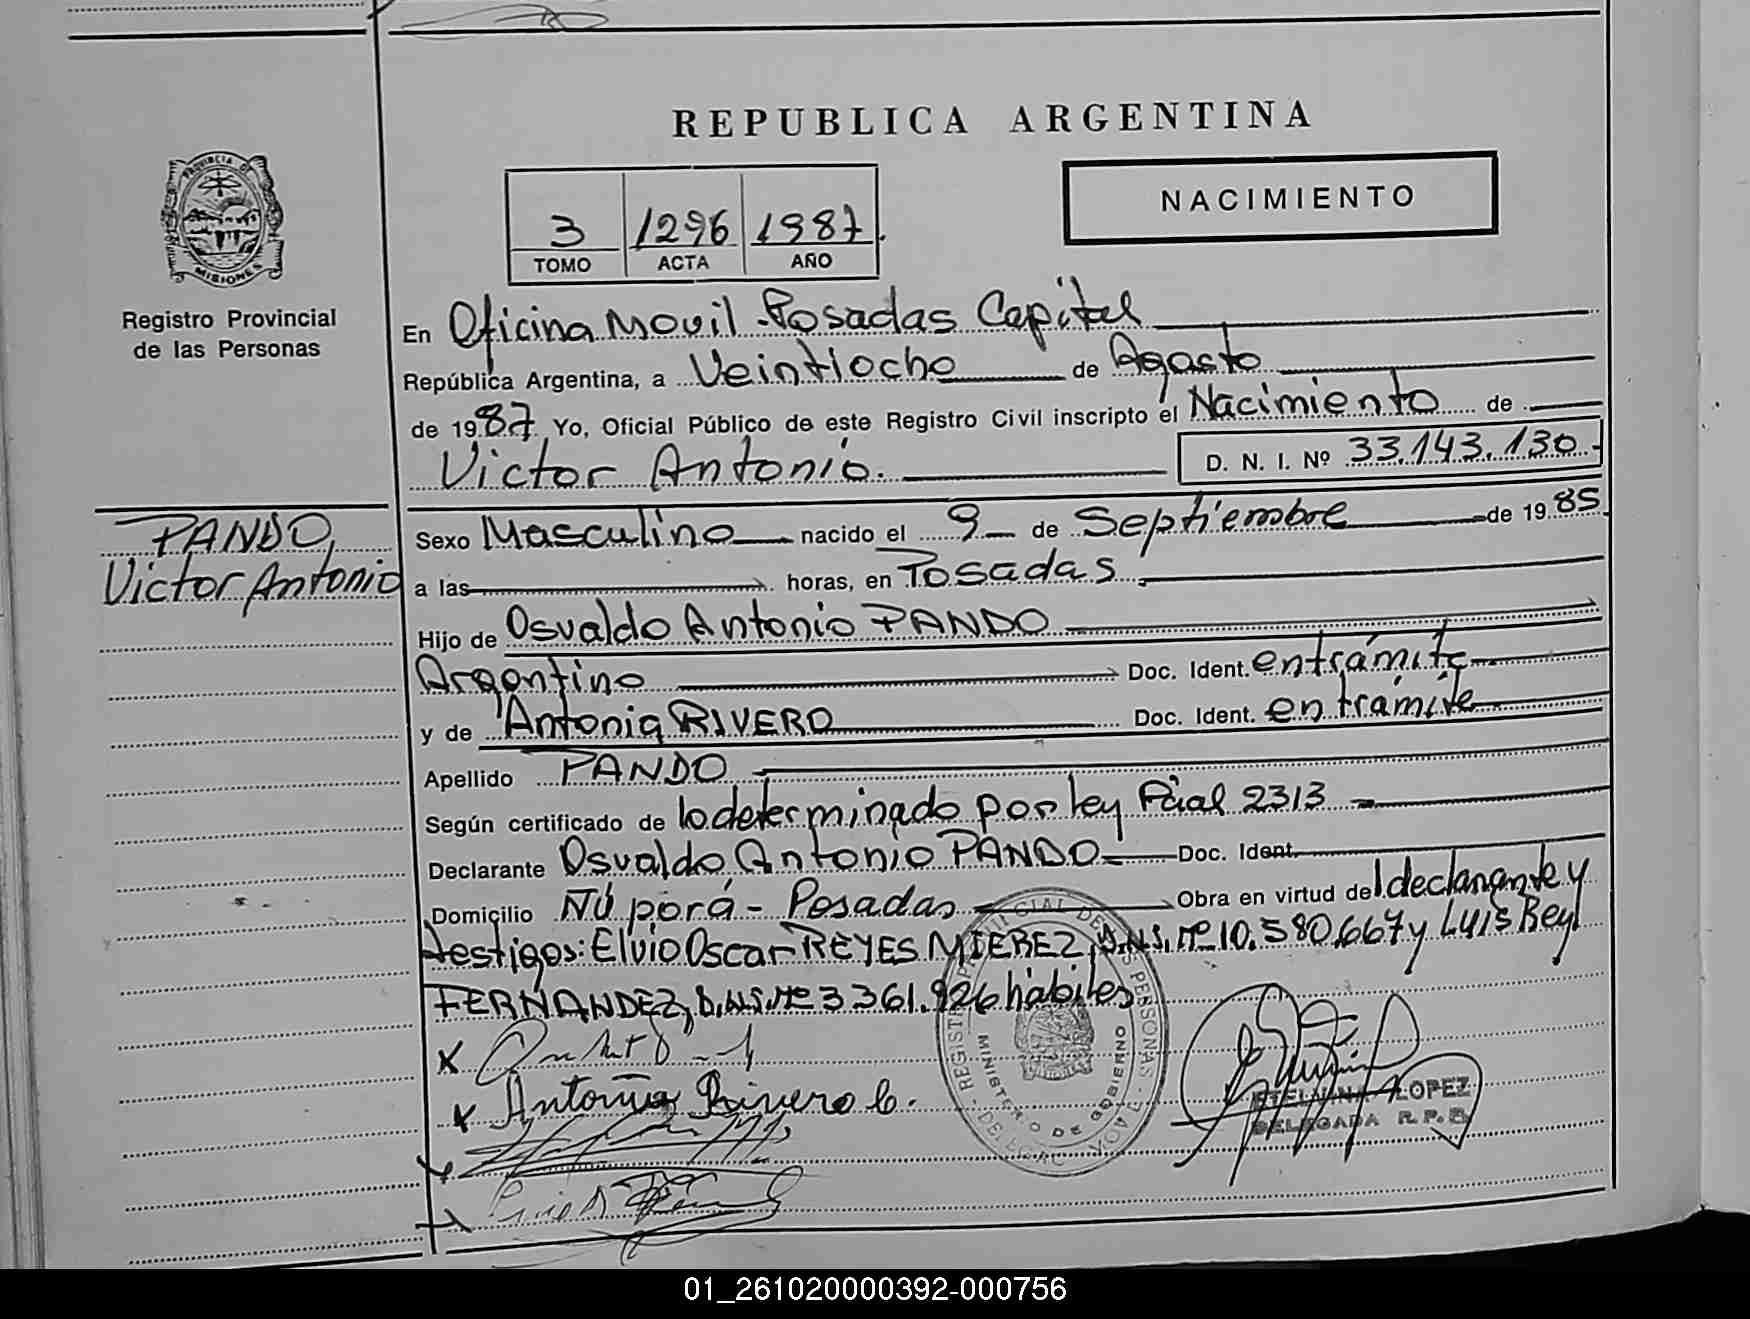 REPUBLICA ARGENTINA
PROVINCIA DE
MISIONES
Registro Provincial
de las Personas
3 1296 1987
TOMO ACTA AÑO
NACIMIENTO
En Oficina Movil - Posadas Capital
República Argentina, a Veintiocho de Agosto
de 1987 Yo, Oficial Público de este Registro Civil inscripto el Nacimiento de
Victor Antonio.
D. N. I. Nº 33.143.130.-
PANDO,
Victor Antonio
Sexo Masculino nacido el 9 de Septiembre de 1985
a las horas, en Posadas
Hijo de Osvaldo Antonio PANDO
Argentino Doc. Ident. en trámite
y de Antonia RIVERO Doc. Ident. en trámite
Apellido PANDO
Según certificado de lo determinado por ley Pcial 2313
Declarante Osvaldo Antonio PANDO Doc. Ident.
Domicilio Ñú porá - Posadas Obra en virtud del declarante y
testigos: Elvio Oscar REYES MIEREZ, D.N.I. Nº 10.580.667 y Luis Rey
FERNANDEZ, D.N.I. Nº 3361.926 hábiles
Antonia Rivero
MINISTERIO DE GOBIERNO
LOPEZ
DELEGADA R.P.P.
01_261020000392-000756